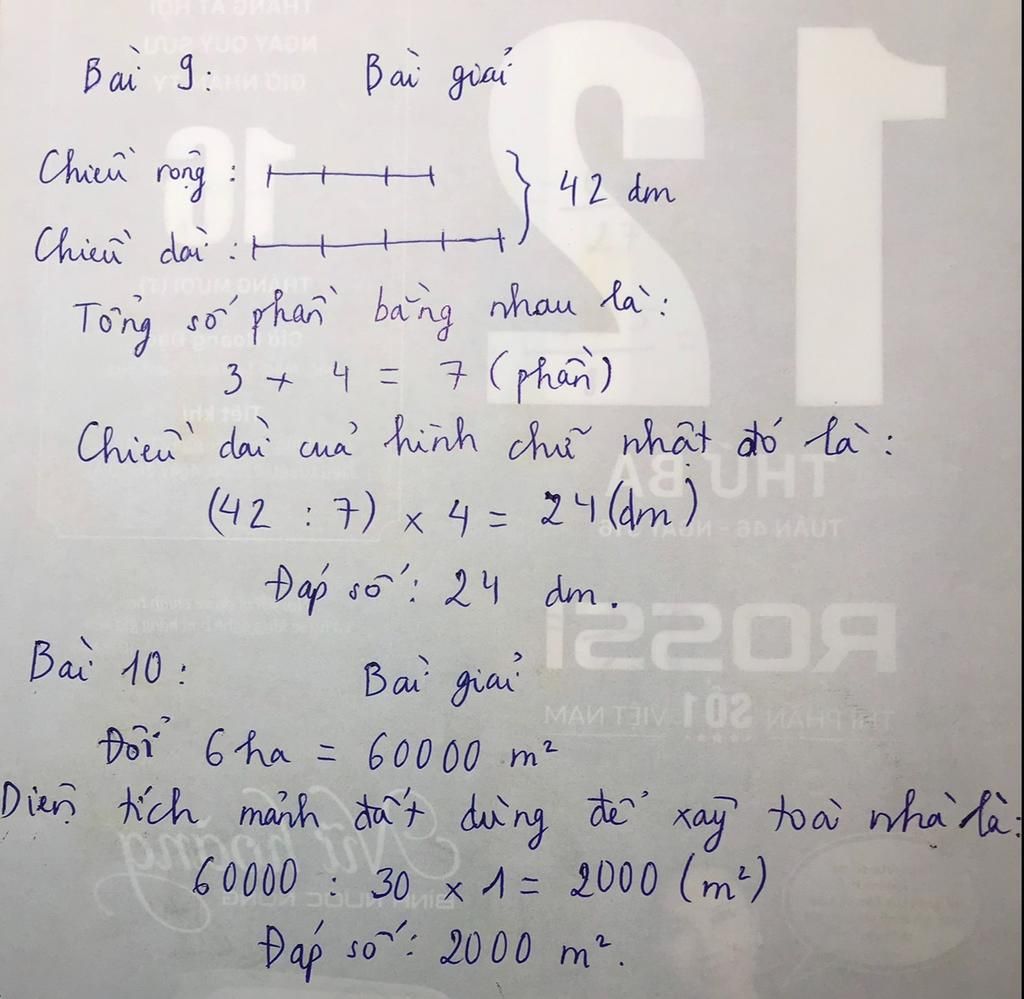 Bài 9: Bài giải
Chiều rộng :
42 dm
Chiều dài :
Tổng số phần bằng nhau là:
3 + 4 = 7 (phần)
Chiều dài của hình chữ nhật đó là:
(42 : 7) x 4 = 24 (dm)
Đáp số: 24 dm.
Bài 10: Bài giải
Đổi 6 ha = 60000 m²
Diện tích mảnh đất dùng để xây toà nhà là:
60000 : 30 x 1 = 2000 (m²)
Đáp số: 2000 m².
12
10
THỨ BA
TUẦN 46 - NGÀY
ROSSI
SỐ 1 VIỆT NAM